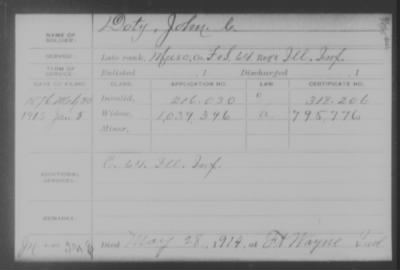 Doty, John C.
NAME OF SOLDIER:
SERVICE:
Late rank, Muso, Co. F & S, 64 Reg't Ill. Inf.
TERM OF SERVICE:
Enlisted , 1 Discharged , 1
DATE OF FILING. CLASS. APPLICATION NO. LAW. CERTIFICATE NO.
1876 Invalid, 216,030 318,206
1915 Jan 5 Widow, 1,039,396 795,776
Minor,
ADDITIONAL SERVICES:
C. 64. Ill. Inf.
REMARKS:
Died May 28, 1914, at Ft Wayne Ind